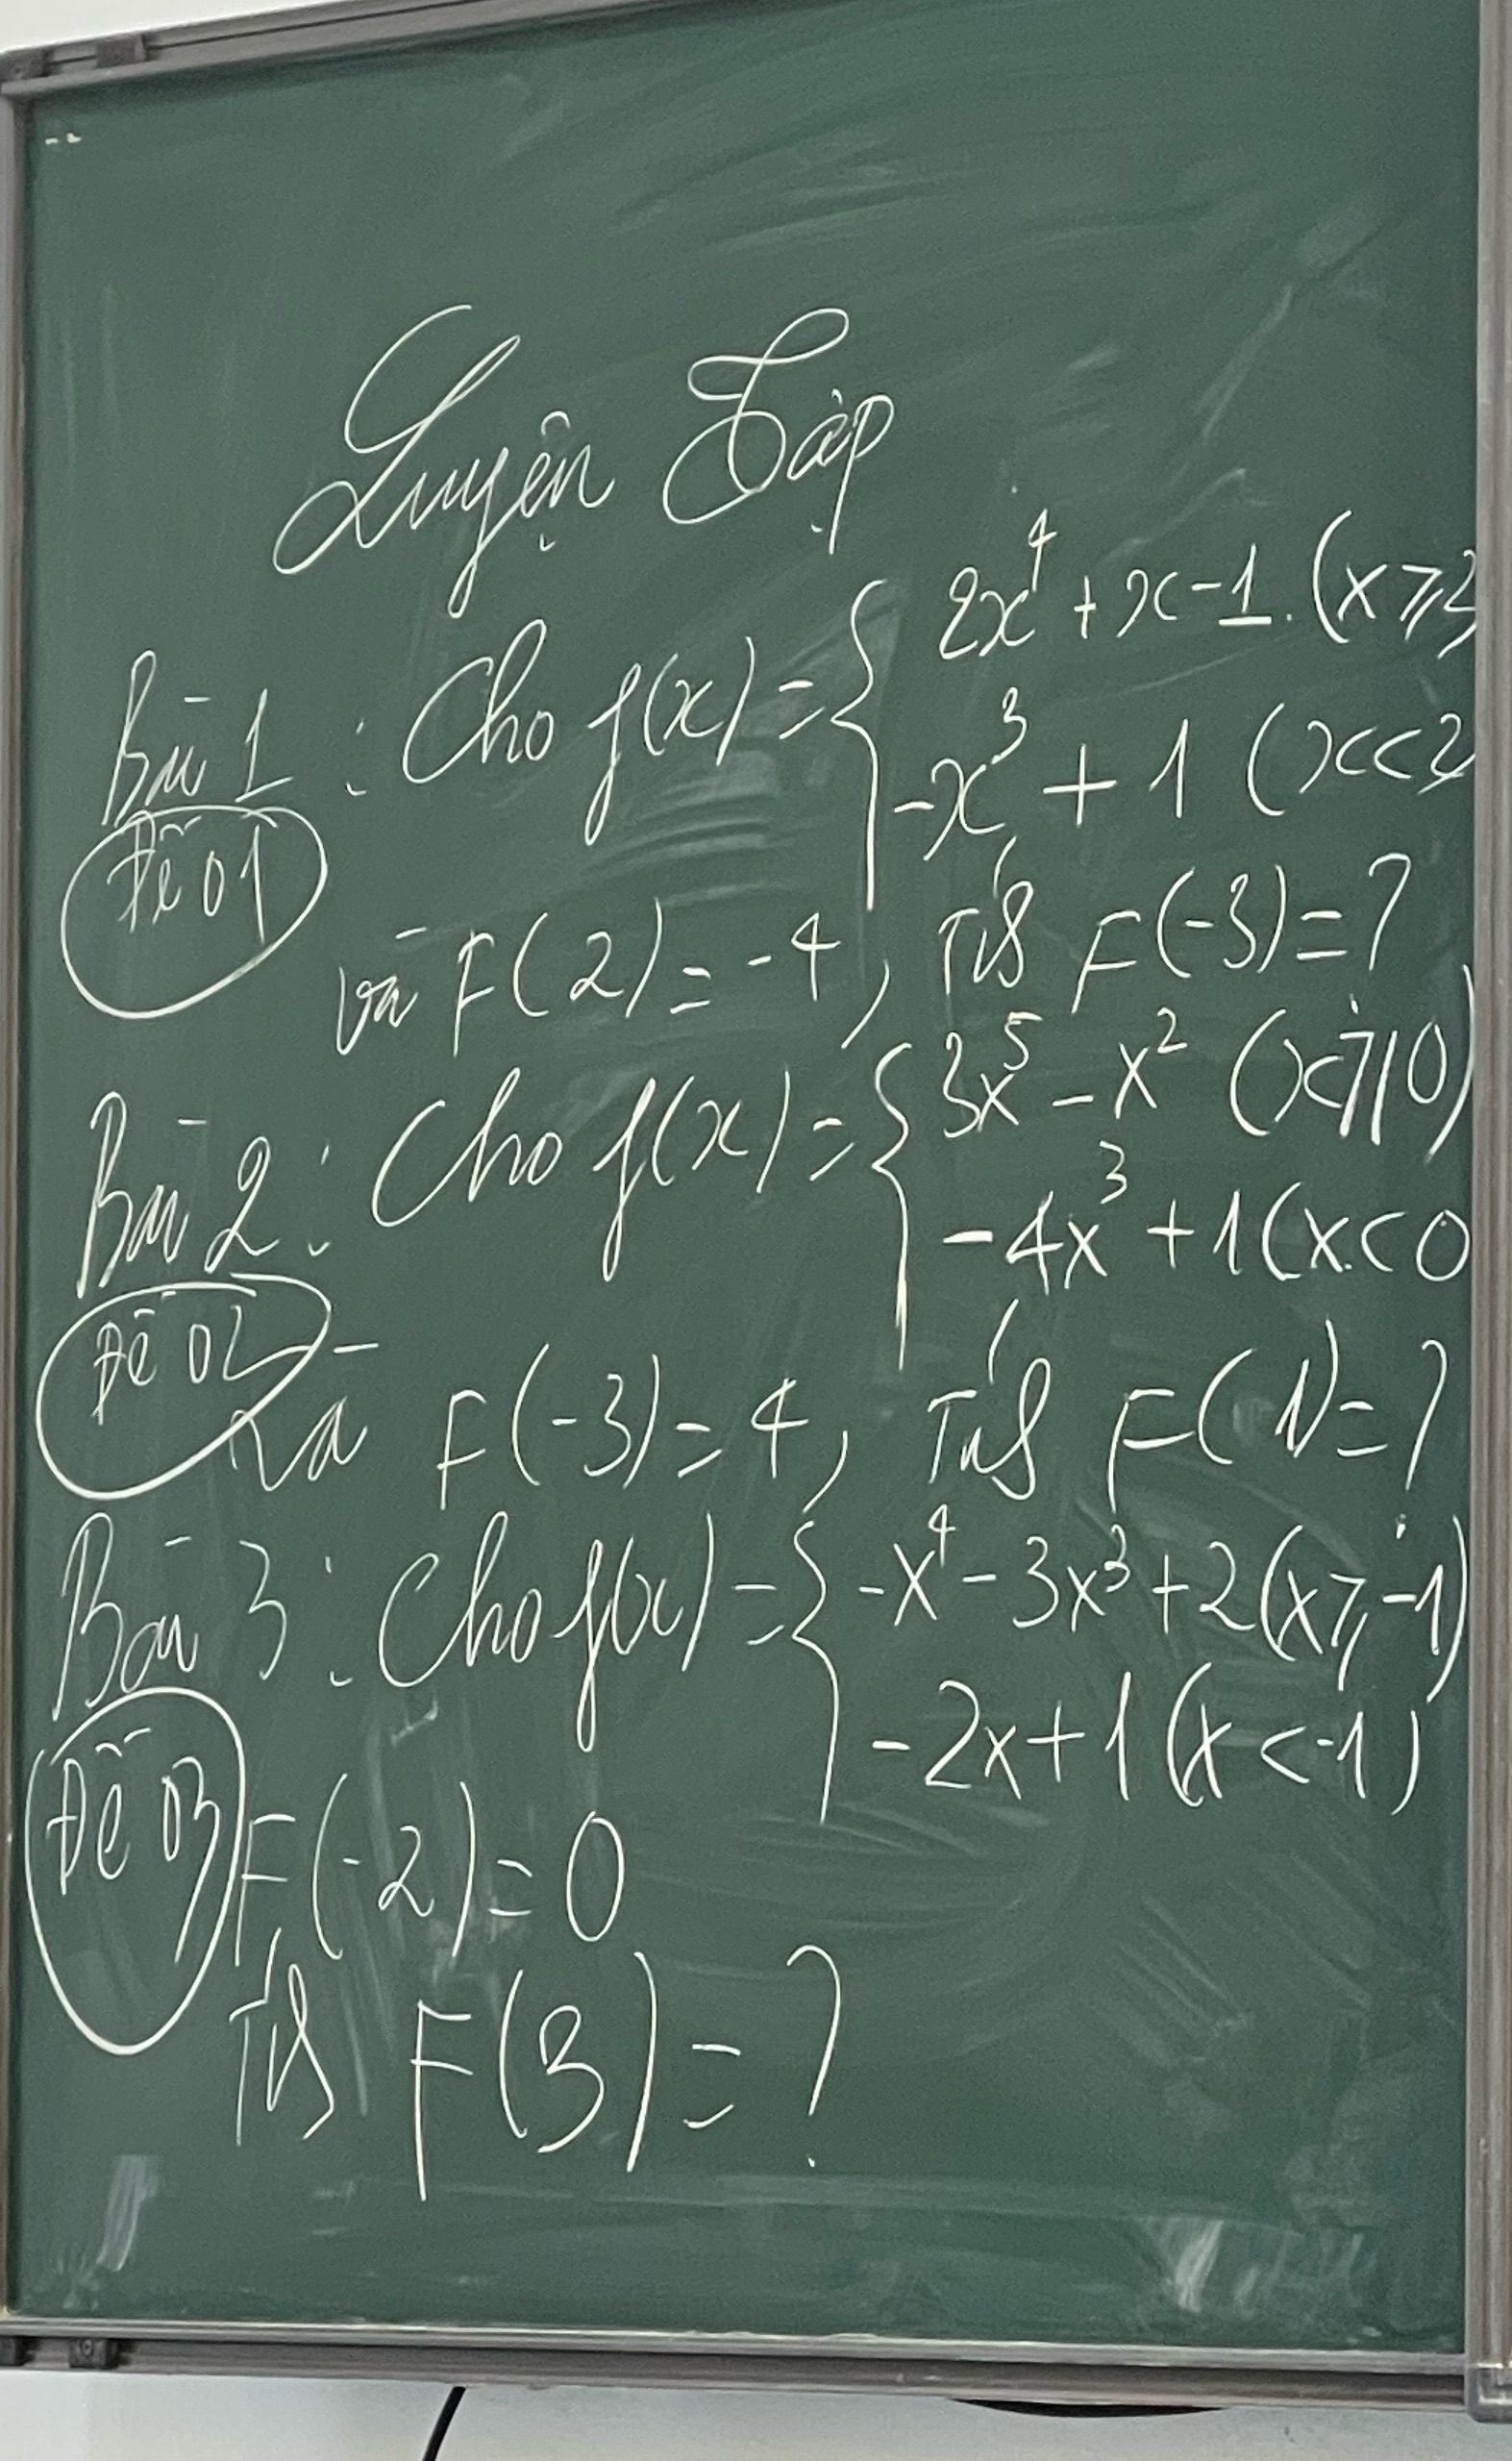 Luyện Tập
Bài 1 : Cho f(x) = { 2x⁴ + x - 1. (x ⩾ 2
-x³ + 1 (x < 2
Đề 01
và F(2) = -4, Tính F(-3) = ?
Bài 2 : Cho f(x) = { 3x⁵ - x² (x ⩾ 0)
-4x³ + 1 (x < 0
Đề 02
và F(-3) = 4, Tính F(1) = ?
Bài 3 : Cho f(x) = { -x⁴ - 3x³ + 2 (x ⩾ -1)
-2x + 1 (x < -1)
Đề 03
F(-2) = 0
Tính F(3) = ?